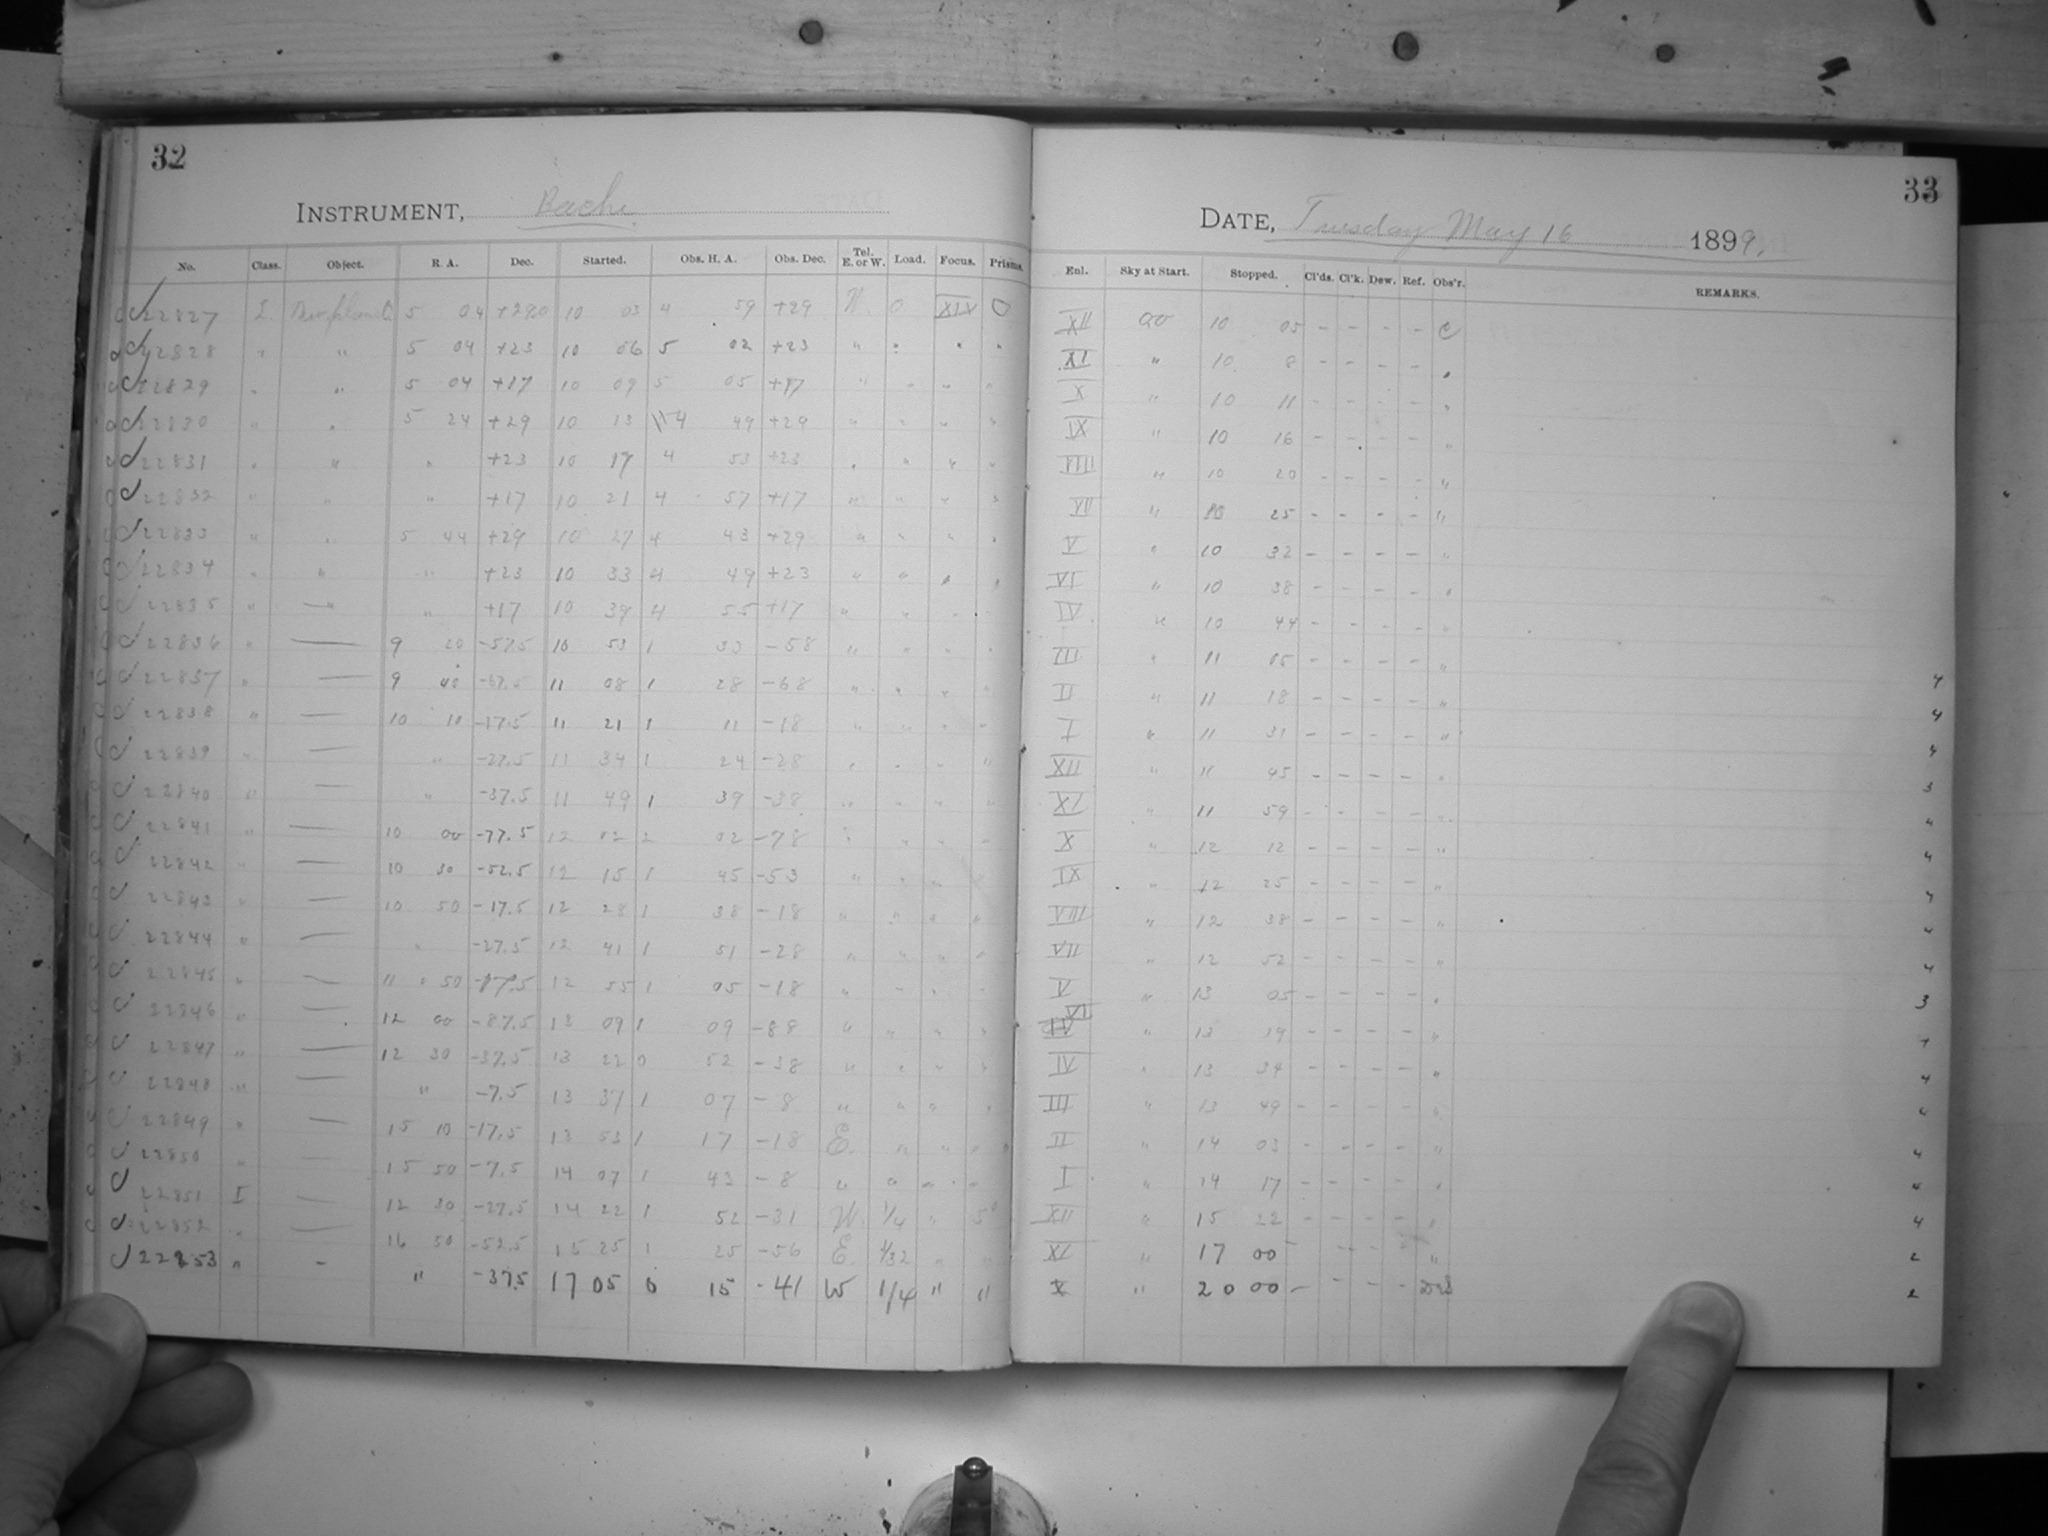 32
INSTRUMENT, Bache
No. Class. Object. R. A. Dec. Started. Obs. H. A. Obs. Dec. Tel. E. or W. Load. Focus. Prisms.
22827 L. 5 04 +290 10 03 4 59 +29 W. 0 XIX 0
22828 " " 5 04 +23 10 06 5 02 +23 " " " "
22829 " " 5 04 +17 10 09 5 05 +17 " " " "
22830 " " 5 24 +29 10 13 4 49 +29 " " " "
22831 " " " +23 10 17 4 53 +23 " " " "
22832 " " " +17 10 21 4 57 +17 " " " "
22833 " " 5 44 +29 10 27 4 43 +29 " " " "
22834 " " " +23 10 33 4 49 +23 " " " "
22835 " " " +17 10 39 4 55 +17 " " "
22836 " — 9 20 -57.5 10 53 1 33 -58 " " " "
22837 " — 9 40 -67.5 11 08 1 28 -68 " " " "
22838 " — 10 10 -17.5 11 21 1 11 -18 " " " "
22839 " — " -27.5 11 34 1 24 -28 " " " "
22840 " — " -37.5 11 49 1 39 -38 " " " "
22841 " — 10 00 -77.5 12 02 2 02 -78 " " " "
22842 " — 10 30 -52.5 12 15 1 45 -53 " " " "
22843 " — 10 50 -17.5 12 28 1 38 -18 " " " "
22844 " — " -27.5 12 41 1 51 -28 " " " "
22845 " — 11 50 -17.5 12 55 1 05 -18 " " " "
22846 " — 12 00 -87.5 13 09 1 09 -88 " " " "
22847 " — 12 30 -37.5 13 22 0 52 -38 " " " "
22848 " — " -7.5 13 37 1 07 -8 " " " "
22849 " — 15 10 -17.5 13 53 1 17 -18 E. " " "
22850 " — 15 50 -7.5 14 07 1 43 -8 " " " "
22851 I — 12 30 -27.5 14 22 1 52 -31 W. 1/4 " 5°
22852 " — 16 50 -52.5 15 25 1 25 -56 E. 1/32 " "
22853 " - " -37.5 17 05 0 15 -41 W 1/4 " "
33
DATE, Tuesday May 16 1899.
Enl. Sky at Start. Stopped. Cl'ds. Cl'k. Dew. Ref. Obs'r. REMARKS.
XII 10 05 - - - - C
XI " 10 8 - - - - "
X " 10 11 - - - - "
IX " 10 16 - - - - "
VIII " 10 20 - - - - "
VII " 10 25 - - - - "
V " 10 32 - - - - "
VI " 10 38 - - - - "
IV " 10 44 - - - - "
III " 11 05 - - - - "
II " 11 18 - - - - " 4
I " 11 31 - - - - " 4
XII " 11 45 - - - - " 4
XI " 11 59 - - - - " 3
X " 12 12 - - - - " 4
IX " 12 25 - - - - " 4
VIII " 12 38 - - - - " 4
VII " 12 52 - - - - " 4
V " 13 05 - - - - " 4
VI " 13 19 - - - - " 3
IV " 13 34 - - - - "
III " 13 49 - - - - " 4
II " 14 03 - - - - " 4
I " 14 17 - - - - " 4
XII " 15 22 - - - - " 4
XI " 17 00 - - - " 2
X " 20 00 - - - - 2